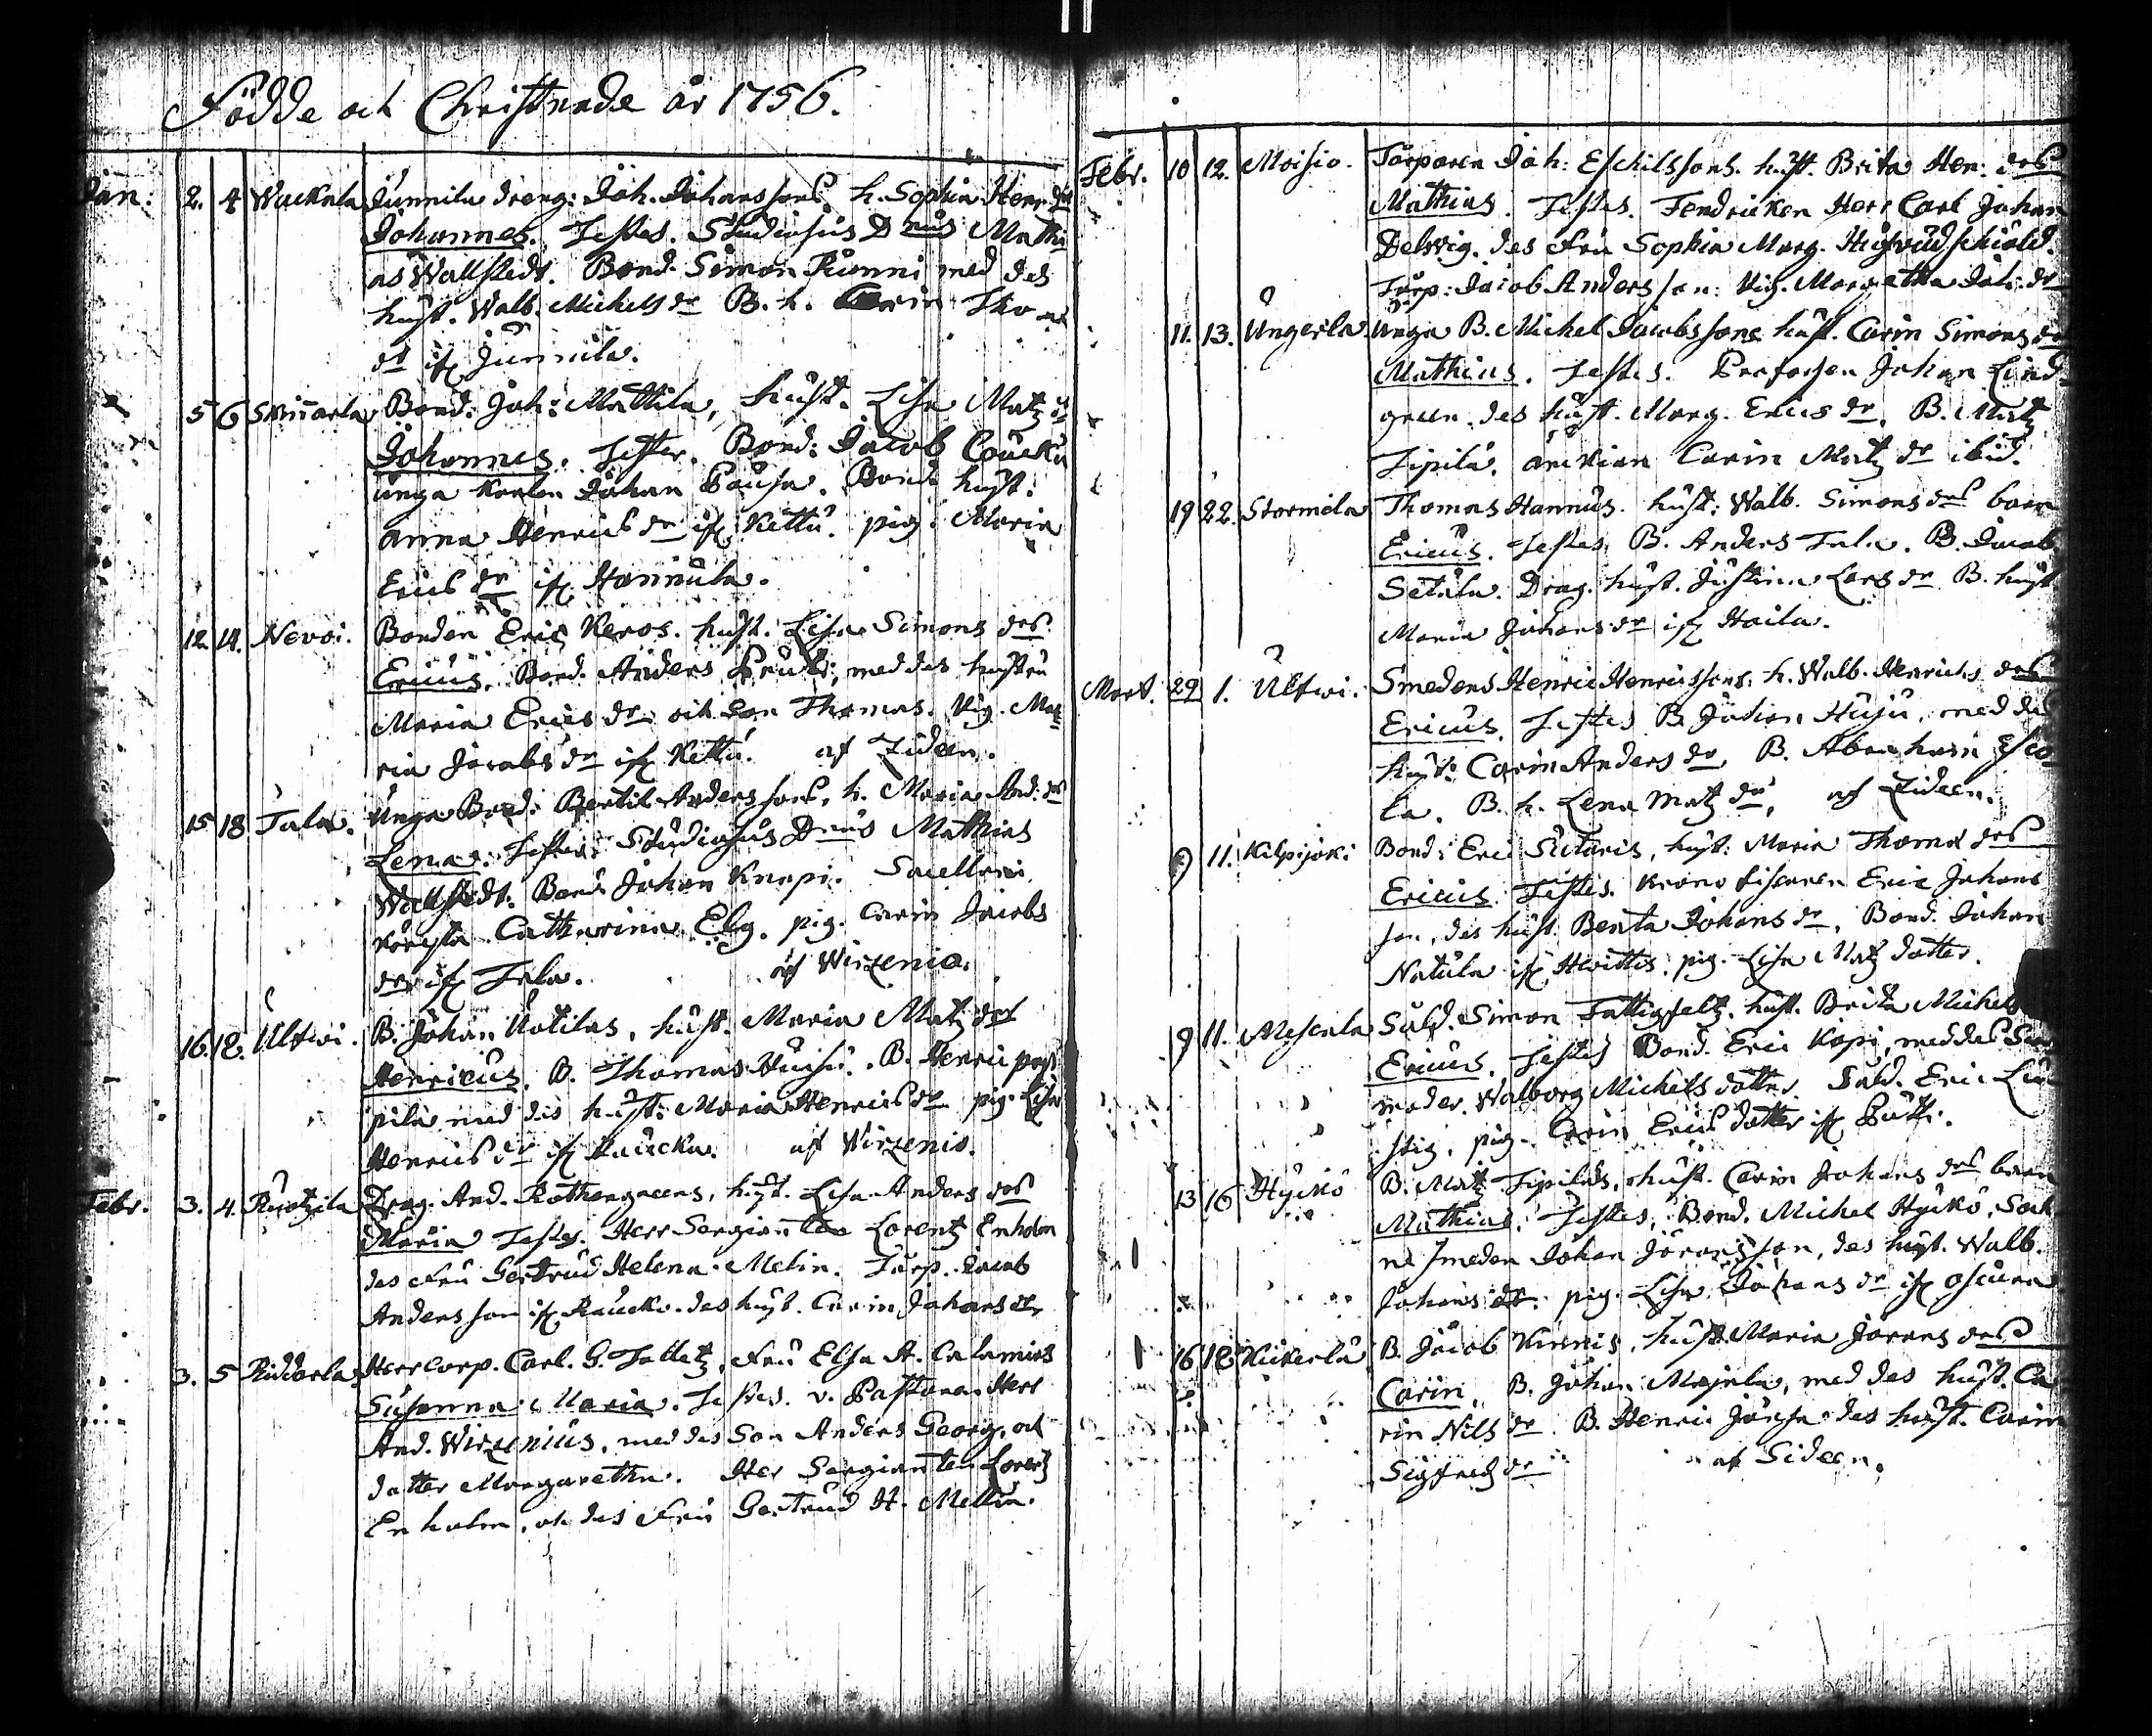 Födde och Christnade år 1756.
Jan: 2. 4 Wackala Junnila dreng: Joh. Johanssons h. Sophia Henr. dr
Johannes. Testes. Studiosus Dnus Mathi
as Wallstedt. Bond. Simon Kunni med des
hust. Walb. Michels dr B. h. Carin Tho
dr if Junnila.
5 6 Bond: Joh: Mattila, hust. Lisa Matz
Johannes. Testes. Bond: Jacob
unga Johan Pausa. Bond. hust.
Anna Henrics dr if Kettu. pig. Maria
Erics dr if Hannula.
12. 14. Nevoi. Bonden Eric Keros. hust. Lisa Simons drs
Ericus. Bond. Anders med des hustru
Maria Erics dr och Son Thomas. Pig. Ma
ria Jacobs dr if Kettu. af Zideen.
15 18 Tala. Unga Bond: Bertil Anderssons, h. Maria And: drs
Lena. Testes. Studiosus Dnus Mathias
Wallstedt. Bond Johan Knapi.
Catharina Elg. pig. Carin Jacobs
dr if Tala. af Wirzenio.
16. 18. Ultwi. B. Johan Uotilas, hust. Maria Matz drs
Henricus. B. Thomas Huisu. B. Henric pap
pila med des hust: Maria Henrics dr pig. Lisa
Henrics dr if Raucka. af Wirzenio.
Febr. 3. 4. Ruotzila Drag. And. Rothengreens, hust. Lisa Anders drs
Maria Testes. Herr Sergianten Lorentz Enholm
des Fru Gertrud Helena Melin. Torp. Jacob
Andersson if Raucko. des hust. Carin Johans dr
3. 5 Riddarla. Herr Corp. Carl. G. Fru Elsa A.
Susanna Maria. Testes. v. Pastoren Herr
And. Wirzenius, med des Son Anders Georg, och
dotter Margaretha. Her Sergianten Lorentz
Enholm, och des Fru Gertrud H. Mellin.
Febr. 10 12. Moisio. Torparen Joh: Eschilssons hust. Brita Hen: drs
Mathias. Testes. Fendricken Herr Carl Johan
Delwig. des Fru Sophia Marg.
Torp: Jacob Andersson: Pig. Margetha Joh: dr
11. 13. Ungerla. Unga B. Michel Jacobssons hust. Carin Simons drs
Mathias. Testes. Profossen Johan Lind
green. des hust. Marg. Erics dr. B. Matz
Sipilä. änckian Carin Matz dr ibid.
19 22. Stormela Thomas Hannus. hust: Walb. Simons drs barn
Ericus. Testes B. Anders Tala. B. Jacob
Setala. Drag. hust. Justina Lars dr B. hust
Maria Johans dr if Haila.
Mart. 29 1. Ultwi. Smedens Henric Henrissons. h. Walb. Henrichs drs
Ericus. Testes B. Johan Huju, med des
hust: Carin Anders dr B. Abraham
la. B. h. Lena Matz dr, af Zideen.
9 11. Kilpijoki Bond: Eric Sutaris, hust: Maria Thomæ drs
Ericus. Testes. Krono fiscaren Eric Johans
son, des hust. Beata Johans dr. Bond. Johan
Natula if Hwittis. pig. Lisa Matz dotter.
9 11. Mescala Sold. Simon Fattigfeltz. hust. Brita Michels
Ericus. Testes Bond. Eric Kopi, med des
moder Walborg Michels dotter. Sold. Eric
stig, pig. Carin Erics dotter if Putti.
13 16 Hyckö B. Matz Sipilas, hust. Carin Johans drs barn
Mathias. Testes, Bond. Michel Hyckö. Sock
ne smeden Johan Jöransson, des hust. Walb.
Johans dr. pig. Lisa Johans dr if
16 18 Kickerla B. Jacob Kunnis, hust. Maria Jörans drs
Carin. B. Johan med des hust. Ca
rin Nils dr B. Henric des hust. Carin
Sigfreds dr af Sideen.